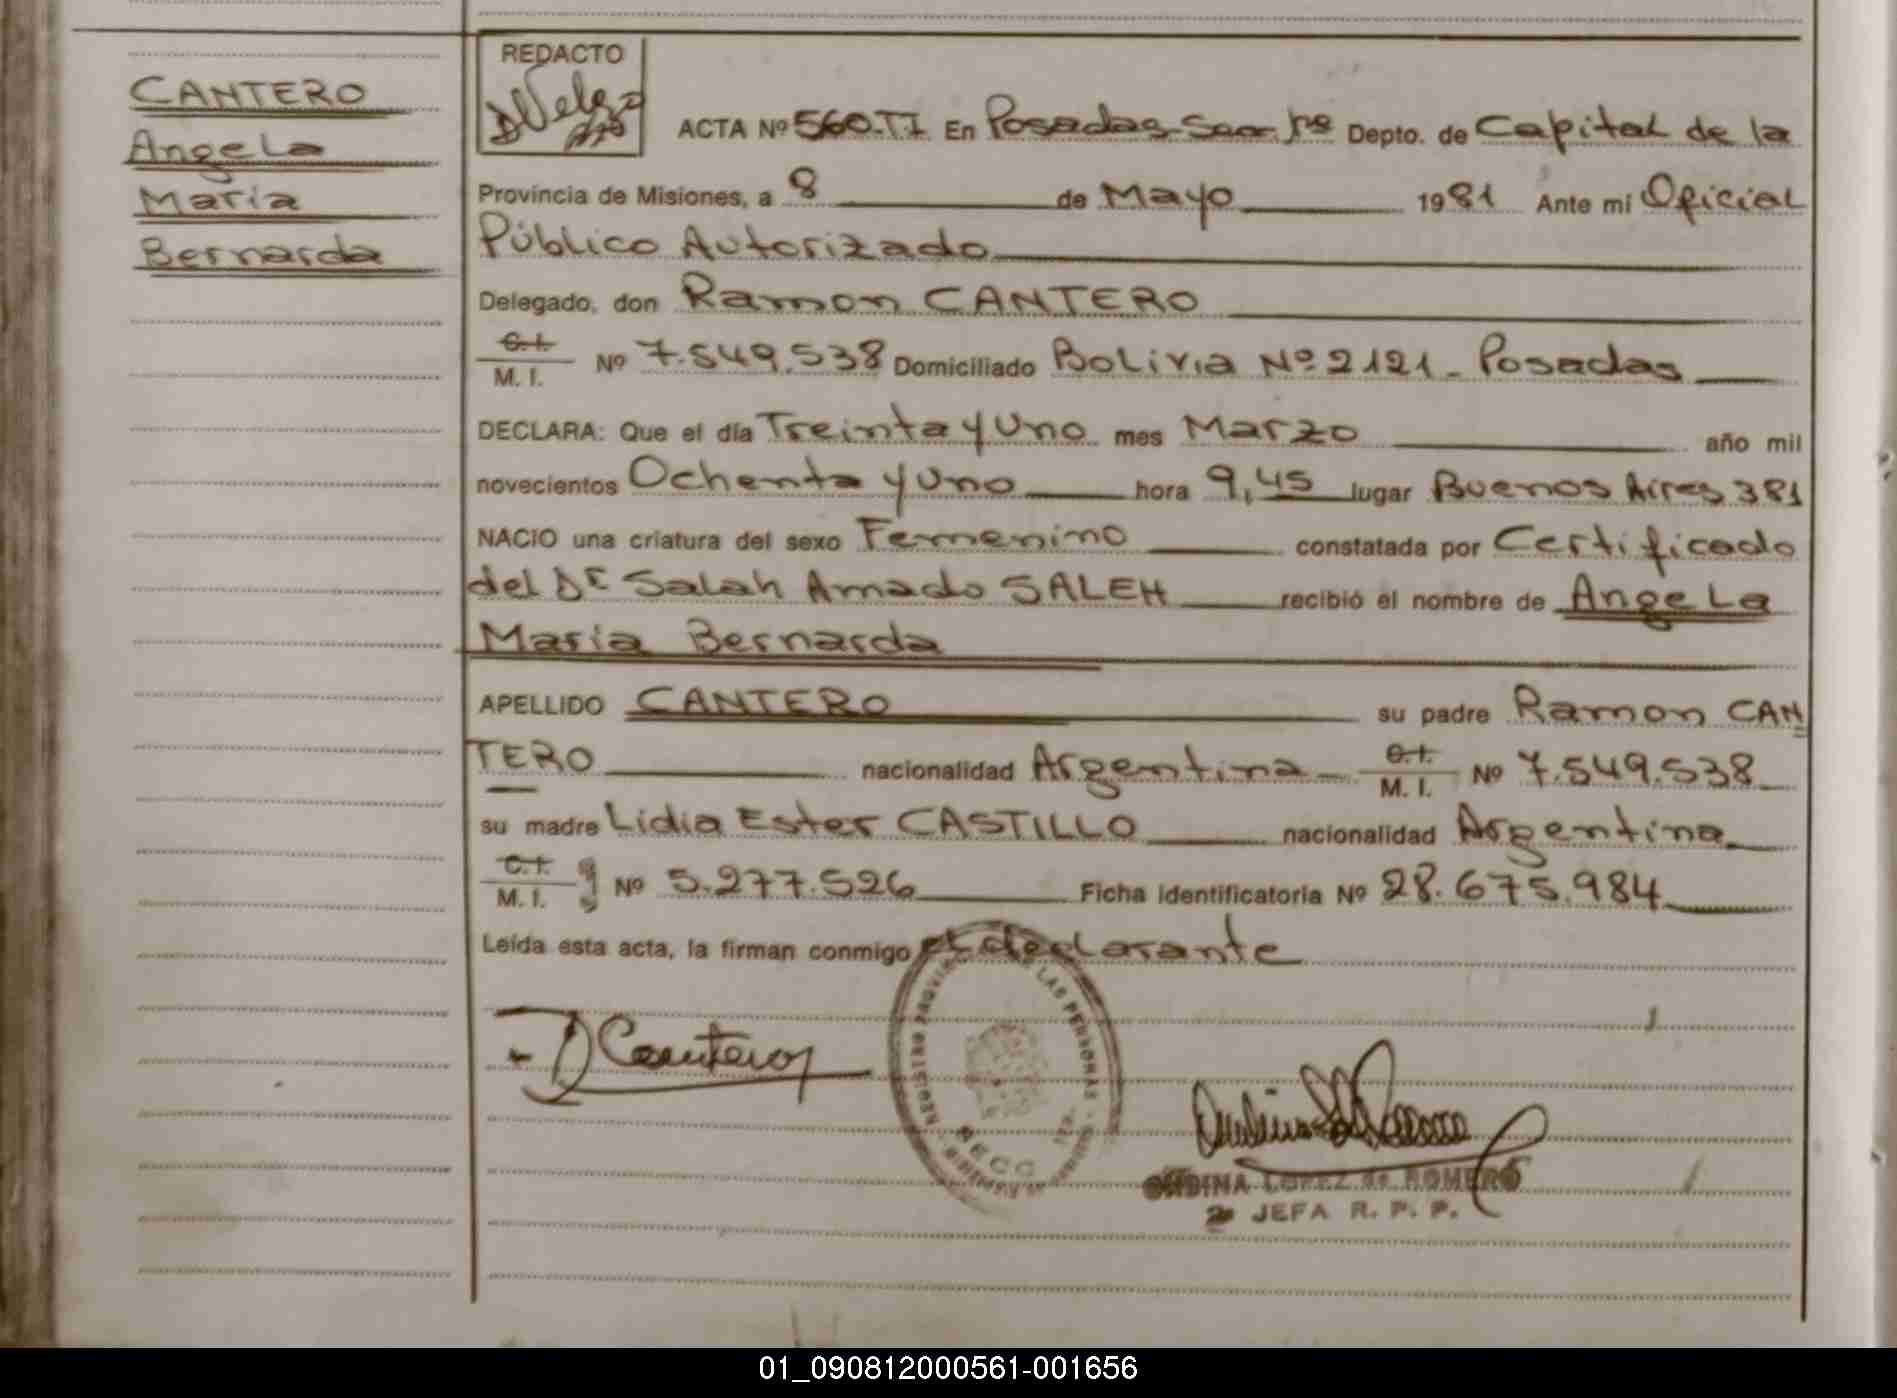 CANTERO
Angela
Maria
Bernarda
REDACTO
ACTA Nº 560.TI En Posadas Secc. 1ra Depto. de Capital de la
Provincia de Misiones, a 8 de Mayo 1981 Ante mi Oficial
Público Autorizado
Delegado, don Ramon CANTERO
C.I.
M.I. Nº 7.549.538 Domiciliado Bolivia Nº 2121 - Posadas
DECLARA: Que el día Treinta y Uno mes Marzo año mil
novecientos Ochenta y Uno hora 9,45 lugar Buenos Aires 381
NACIO una criatura del sexo Femenino constatada por Certificado
del Dr Salah Amado SALEH recibió el nombre de Angela
Maria Bernarda
APELLIDO CANTERO su padre Ramon CAN
TERO nacionalidad Argentina C.I. M.I. Nº 7.549.538
su madre Lidia Ester CASTILLO nacionalidad Argentina
C.I.
M.I. Nº 5.277.526 Ficha identificatoria Nº 28.675.984
Leída esta acta, la firman conmigo el declarante
Cantero
REGISTRO LAS PERSONAS
LOPEZ de ROMERO
JEFA R. P. P.
01_090812000561-001656